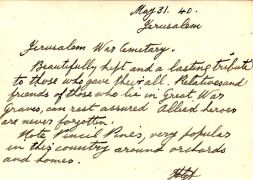 May 31. 40.
Jerusalem
Jerusalem War Cemetery.
Beautifully kept and a lasting tribute
to those who gave their all. Relatives and
friends of those who lie in Great War
Graves, can rest assured Allied heroes
are never forgotten.
Note Pencil Pines, very popular
in this country around orchards
and homes.